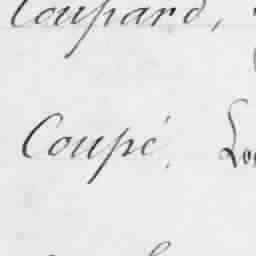 Coupard,
Coupé, Lo